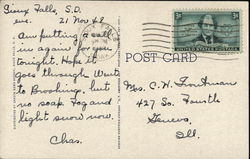 Sioux Falls, S.D.
eve. 21 Nov 48
Am putting a call
in again for you
tonight. Hope it
goes through. Went
to Brookings, but
no soap. Fog and
light snow now.
Chas.
POST CARD
UNITED STATES POSTAGE
3¢
Mrs. C. H. Trautman
427 So. Fourth
Geneva,
Ill.